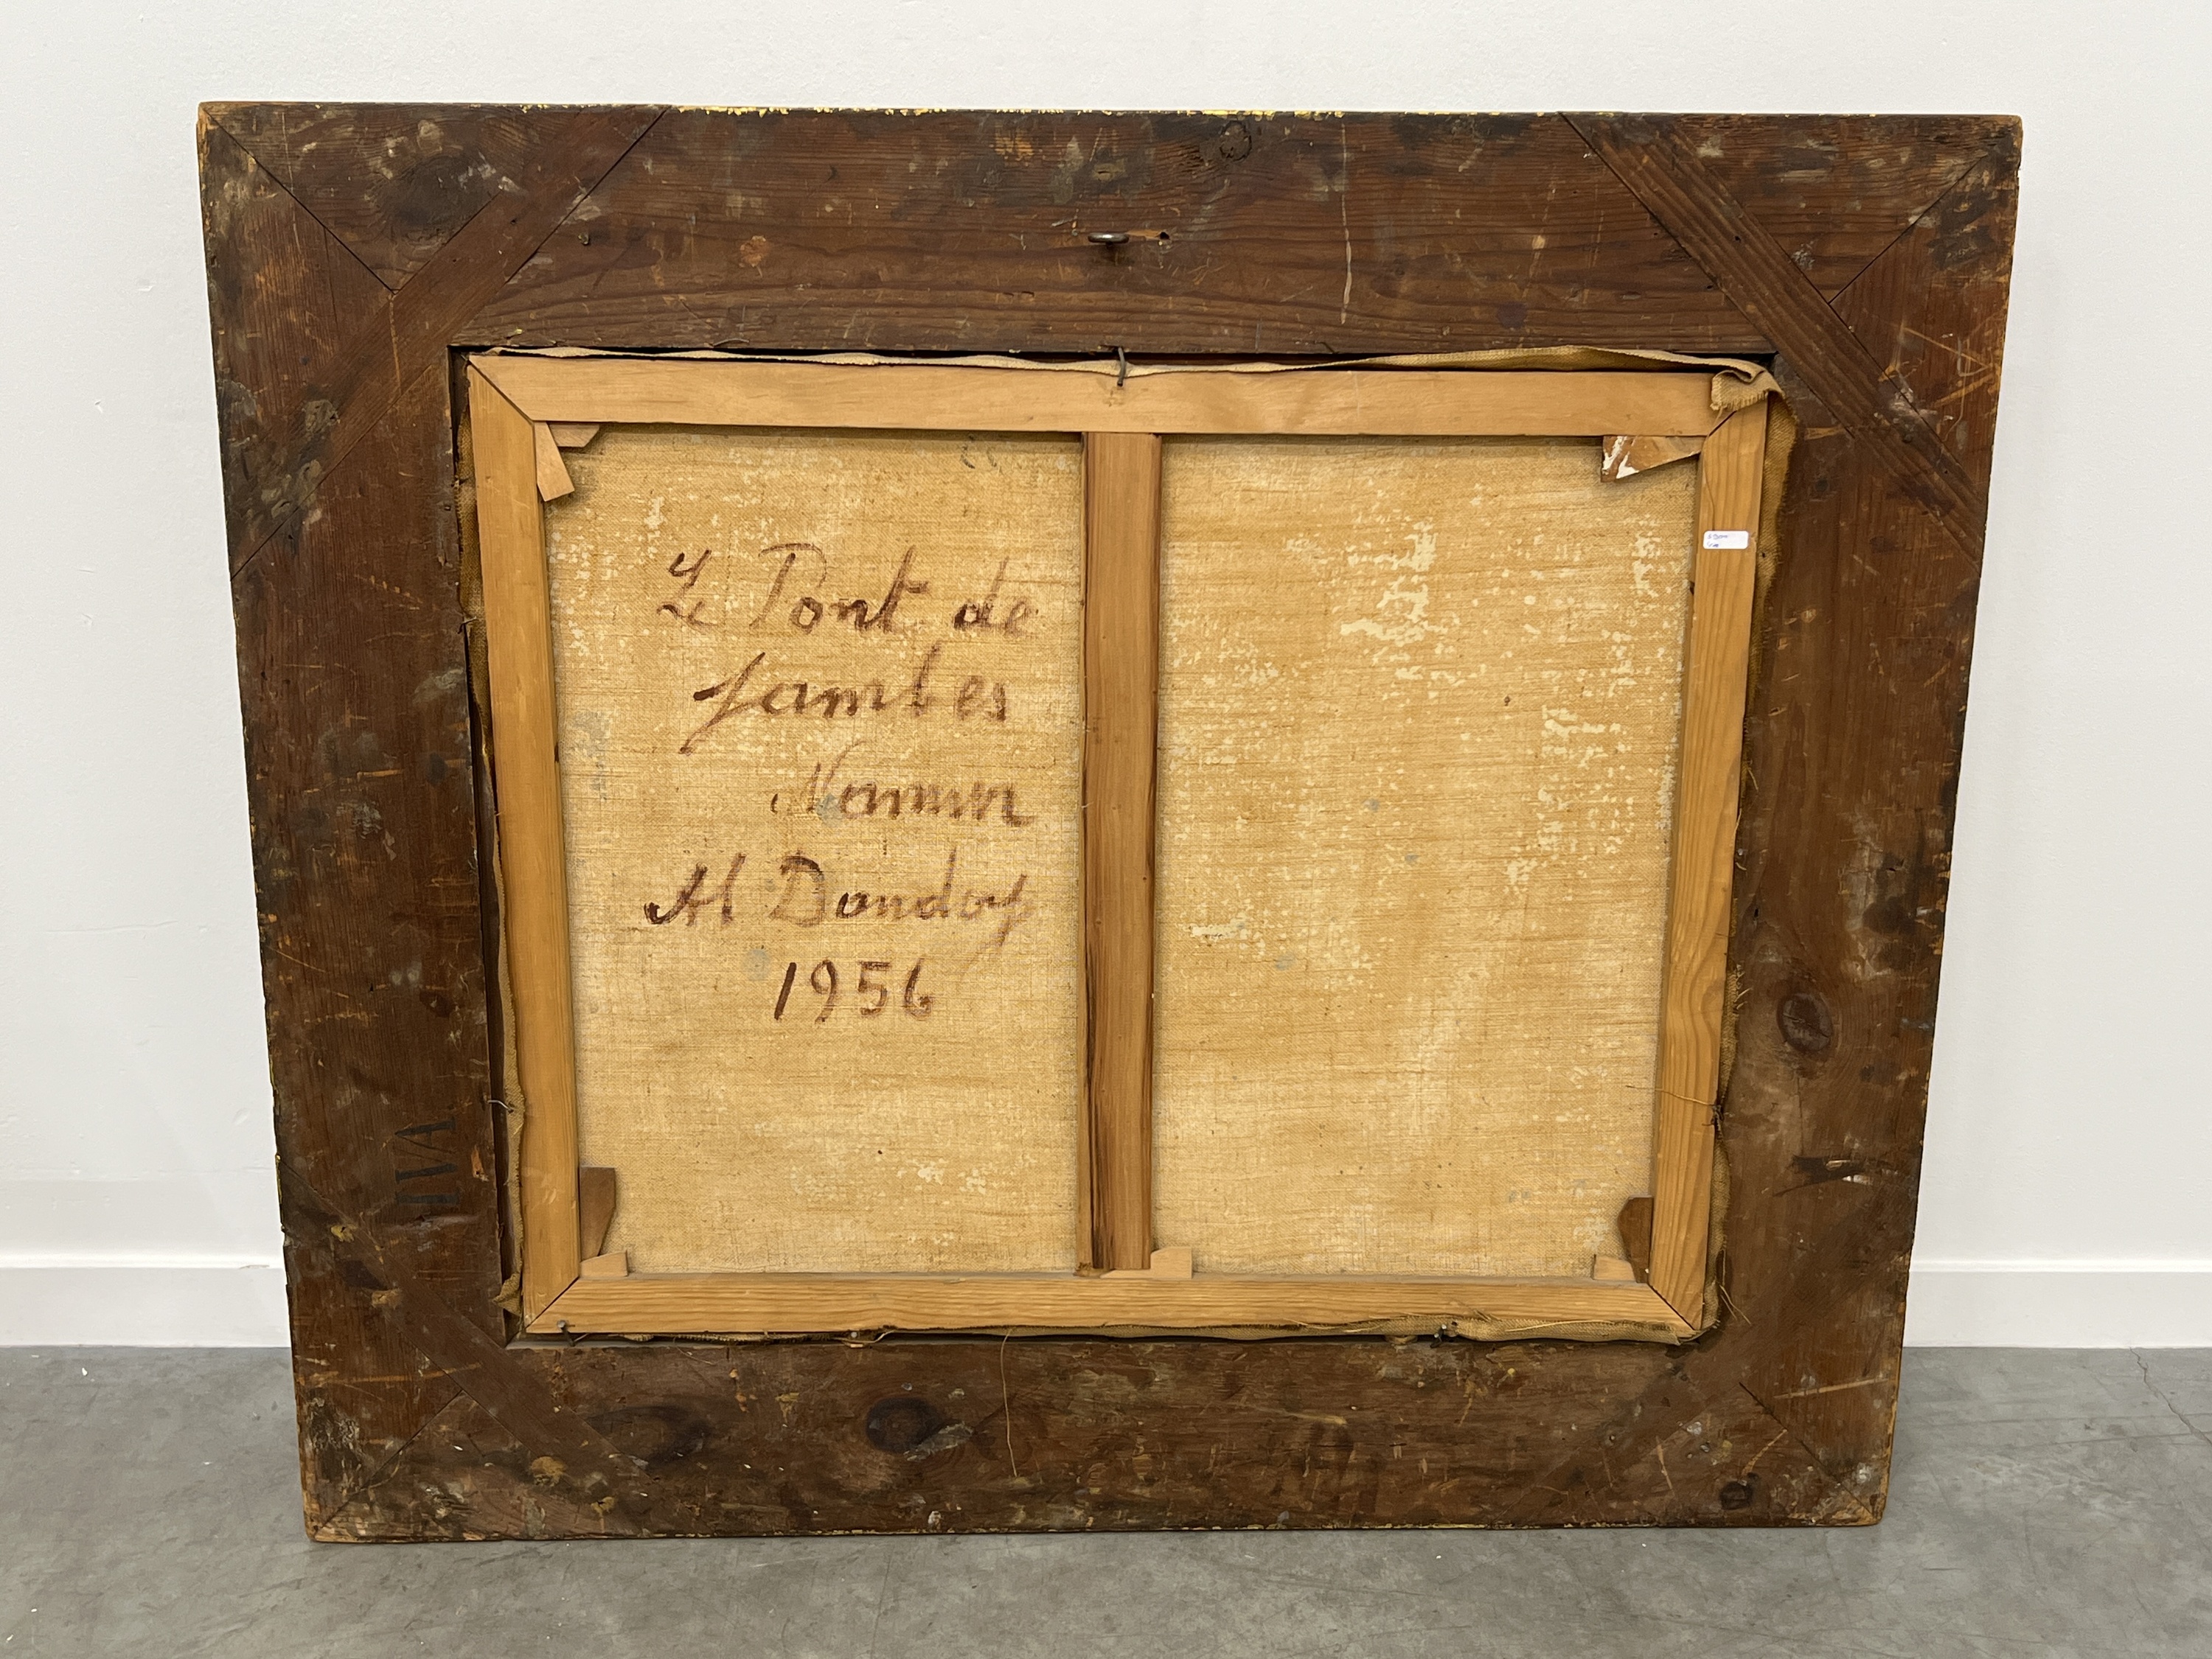 Le Pont de
Jambes
Namur
Al Dandoy
1956
VIII